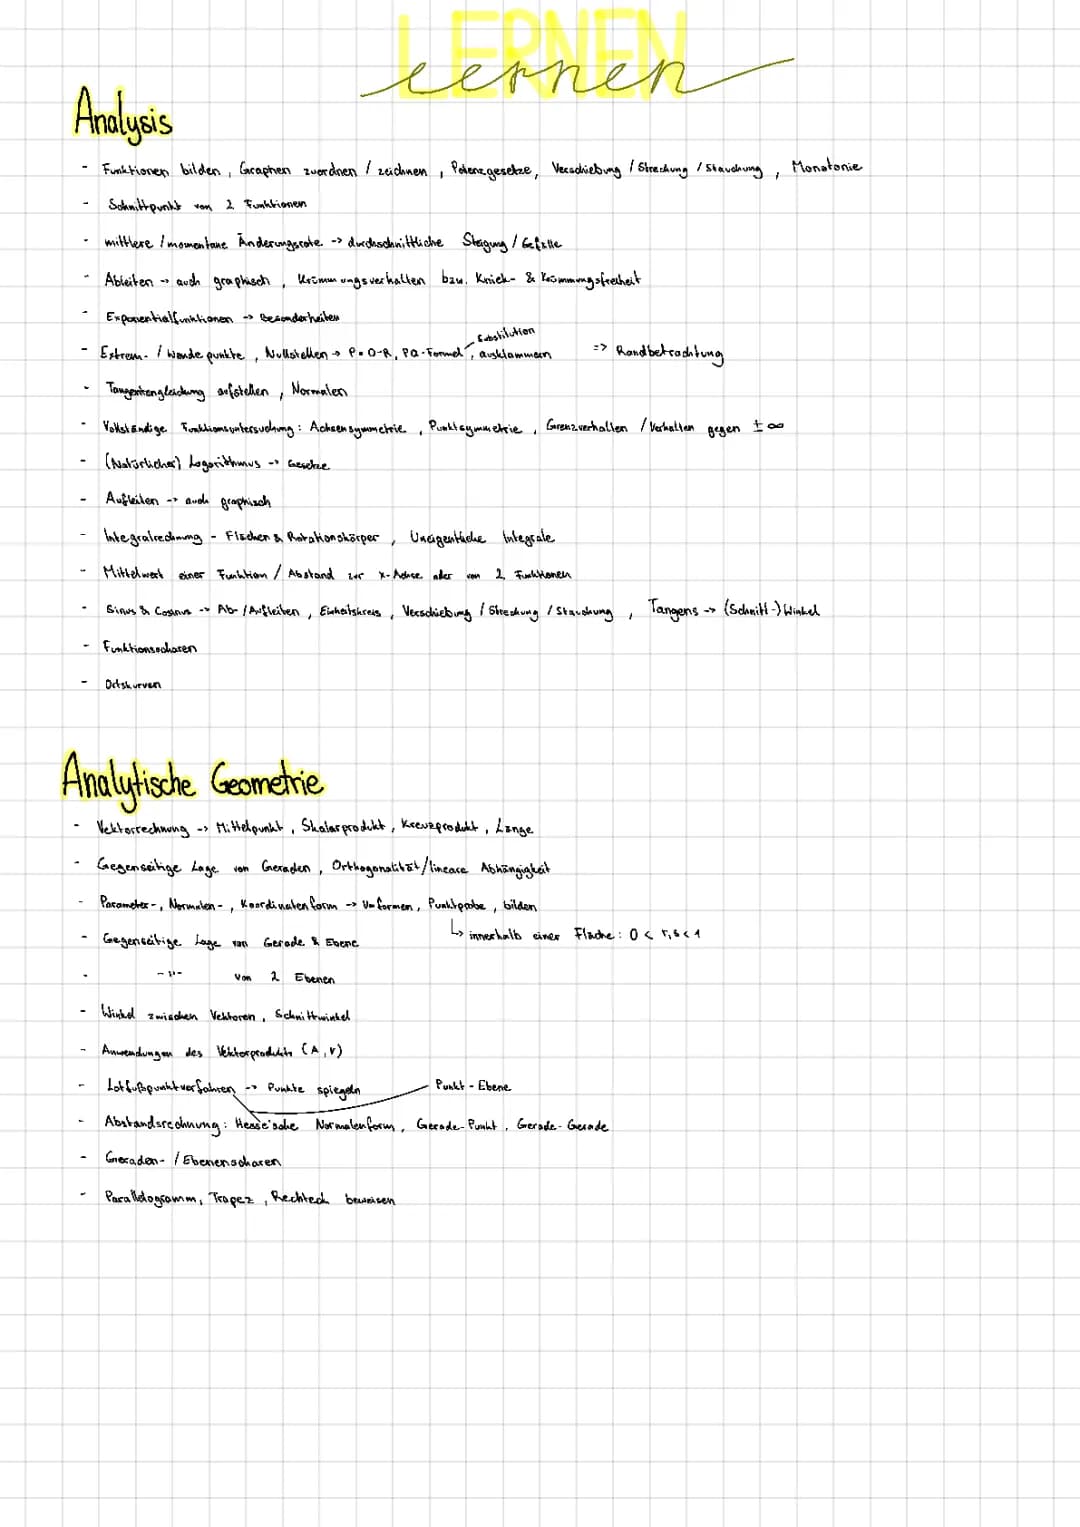 LERNEN
lernen
Analysis
- Funktionen bilden, Graphen zuordnen / zeichnen, Potenzgesetze, Verschiebung / Streckung / Stauchung, Monotonie
- Schnittpunkt von 2 Funktionen
- mittlere / momentane Änderungsrate -> durchschnittliche Steigung / Gefälle
- Ableiten -> auch graphisch, Krümmungsverhalten bzw. Knick- & Krümmungsfreiheit
- Exponentialfunktionen -> Besonderheiten
Substitution
- Extrem- / Wendepunkte, Nullstellen -> P•Q-R, PQ-Formel, ausklammern => Randbetrachtung
- Tangentengleichung aufstellen, Normalen
- Vollständige Funktionsuntersuchung: Achsensymmetrie, Punktsymmetrie, Grenzverhalten / Verhalten gegen ±∞
- (Natürlicher) Logarithmus -> Gesetze
- Aufleiten -> auch graphisch
- Integralrechnung - Flächen & Rotationskörper, Uneigentliche Integrale
- Mittelwert einer Funktion / Abstand zur x-Achse oder von 2 Funktionen
- Sinus & Cosinus -> Ab- / Aufleiten, Einheitskreis, Verschiebung / Streckung / Stauchung, Tangens -> (Schnitt-) Winkel
- Funktionsscharen
- Ortskurven
Analytische Geometrie
- Vektorrechnung -> Mittelpunkt, Skalarprodukt, Kreuzprodukt, Länge
- Gegenseitige Lage von Geraden, Orthogonalität/lineare Abhängigkeit
- Parameter-, Normalen-, Koordinatenform -> Umformen, Punktprobe, bilden
↳ innerhalb einer Fläche: 0 < r,s < 1
- Gegenseitige Lage von Gerade & Ebene
- -"- von 2 Ebenen
- Winkel zwischen Vektoren, Schnittwinkel
- Anwendungen des Vektorprodukts (A, V)
- Lotfußpunktverfahren -> Punkte spiegeln Punkt - Ebene
- Abstandsrechnung: Hesse'sche Normalenform, Gerade-Punkt, Gerade-Gerade
- Geraden- / Ebenenscharen
- Parallelogramm, Trapez, Rechteck beweisen